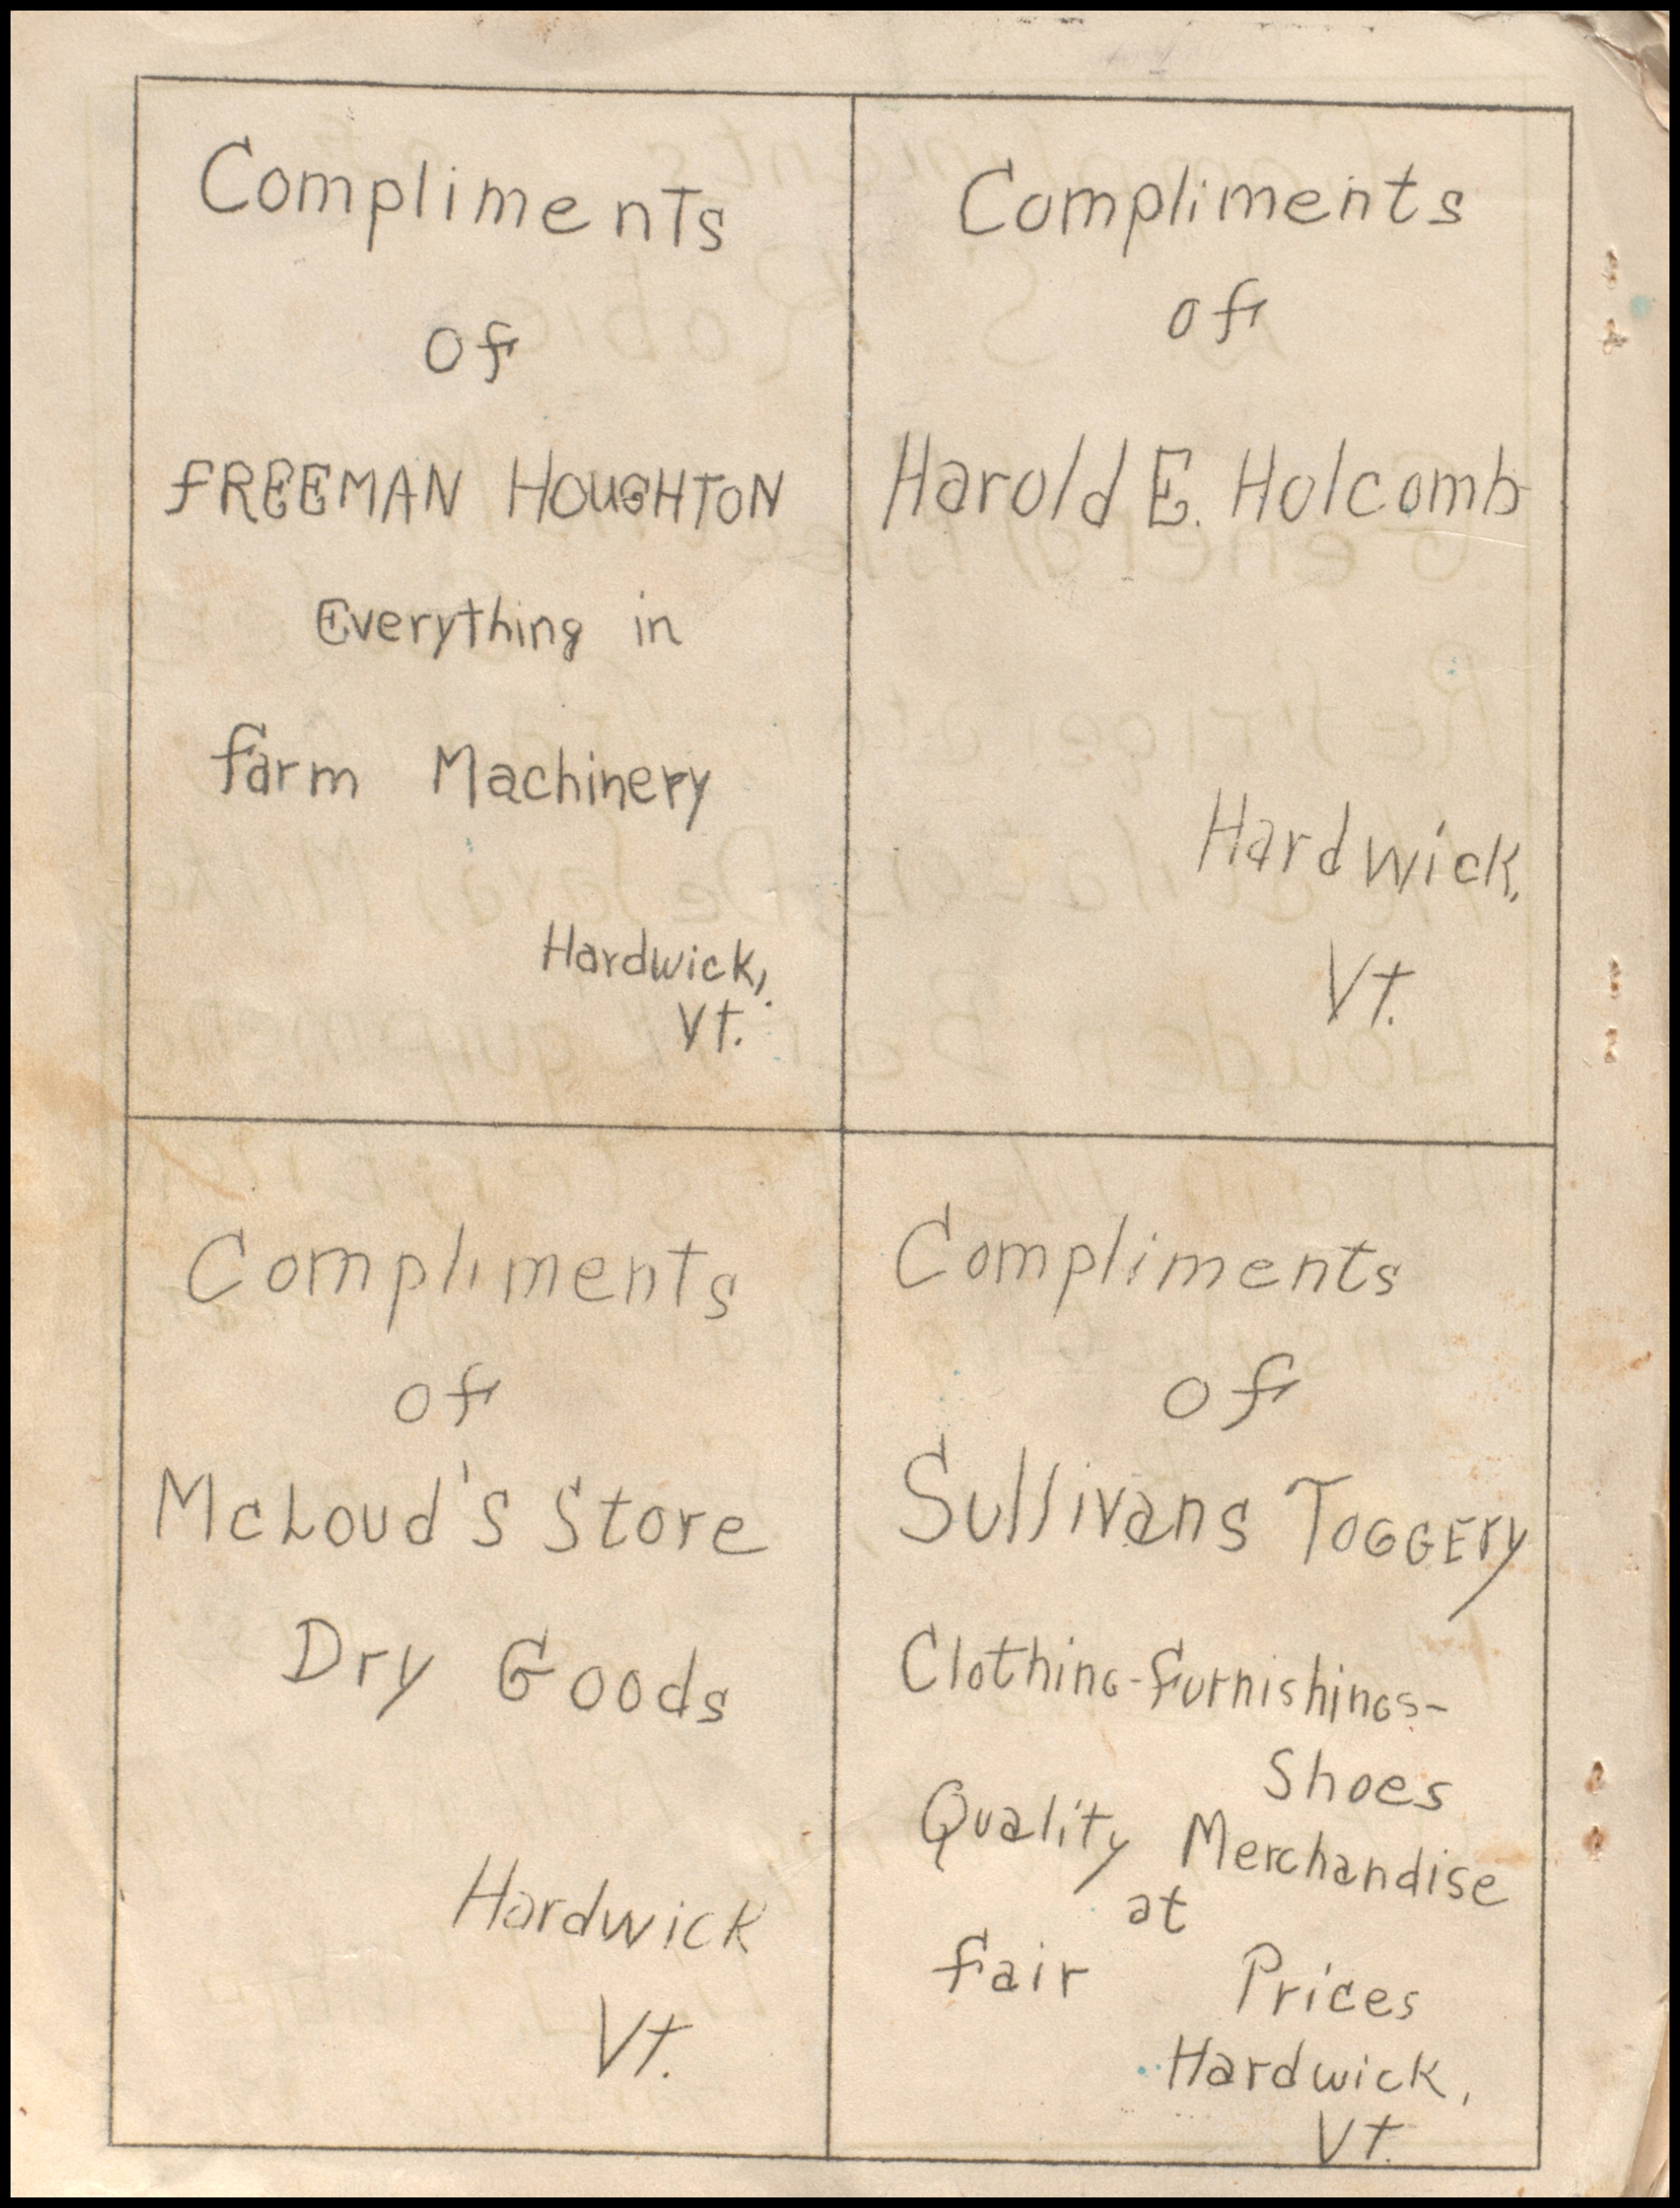 Compliments
of
FREEMAN HOUGHTON
Everything in
farm Machinery
Hardwick,
Vt.
Compliments
of
Harold E. Holcomb
Hardwick,
Vt.
Compliments
of
McLoud's Store
Dry Goods
Hardwick
Vt.
Compliments
of
Sullivans TOGGERY
Clothing-furnishings-
Shoes
Quality Merchandise
at
fair Prices
Hardwick,
Vt.